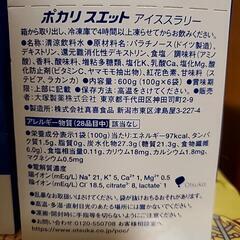 ポカリスエット アイススラリー
箱から取り出し、冷凍庫で4時間以上凍らせてからお飲みください。
●名称:清涼飲料水●原材料名:パラチノース(ドイツ製造)、
デキストリン、還元難消化性デキストリン、食塩/増粘剤(アミノ酸)、
香料、酸味料、増粘多糖類、塩化K、乳酸Ca、塩化Mg、酸
化防止剤(ビタミンC、ヤマモモ抽出物)、紅花色素、甘味料(ス
クラロース)●内容量:600g(100g×6袋)●賞味期限:
上部に記載 ●保存方法:直射日光、高温をさけてください。
●販売者:大塚製薬株式会社 東京都千代田区神田司町2-9
●製造所:株式会社真喜食品 新潟市東区津島屋3-227-4
アレルギー物質(28品目中) 該当なし
栄養成分表示1袋(100g)当たりエネルギー97kcal、タンパ
ク質1.5g、脂質0g、炭水化物23.7g(糖質21.3g、食物繊維
6.0g)、食塩相当量0.11g、カリウム18mg、カルシウム1.8mg、
マグネシウム0.5mg
●電解質濃度
陽イオン(mEq/L) Na⁺ 21, K⁺ 5, Ca²⁺ 1, Mg²⁺ 0.5
陰イオン(mEq/L) Cl⁻ 18.5, citrate³⁻ 8, lactate⁻ 1
Otsuka
乱暴に扱われますと、袋が破れるおそれがありますのでご注意ください。
お問い合わせ先 0120-550708
https://www.otsuka.co.jp/poc/